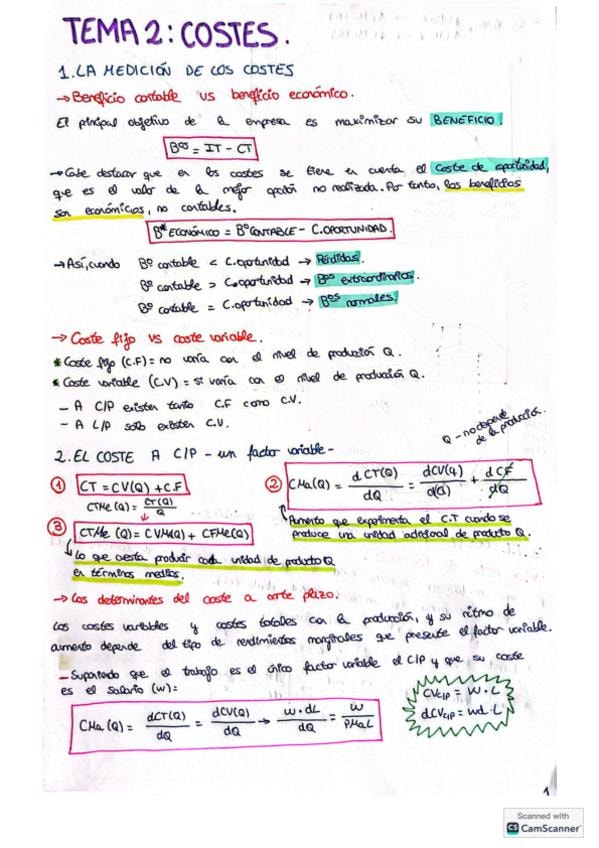 TEMA 2: COSTES.
1. LA MEDICIÓN DE LOS COSTES
→ Beneficio contable VS beneficio económico.
El principal objetivo de la empresa es maximizar su BENEFICIO.
Bos = IT - CT
→ Cabe destacar que en los costes se tiene en cuenta el coste de oportunidad,
que es el valor de la mejor opción no realizada. Por tanto, los beneficios
son económicos, no contables.
Bº ECONÓMICO = Bº CONTABLE - C.OPORTUNIDAD.
→ Así, cuando Bº contable < C.oportunidad → Pérdidas.
Bº contable > C.oportunidad → Bos extraordinarios.
Bº contable = C.oportunidad → Bos normales.
→ Coste fijo VS coste variable.
* Coste fijo (C.F) = no varía con el nivel de producción Q.
* Coste variable (C.V) = sí varía con el nivel de producción Q.
- A C/P existen tanto C.F como C.V.
- A L/P solo existen C.V.
Q - no depende
de la producción.
2. EL COSTE A C/P - un factor variable -
① CT = CV(Q) + C.F
CTMe(Q) = CT(Q)/Q
② CMa(Q) = dCT(Q)/dQ = dCV(Q)/d(Q) + dCF/dQ
Aumento que experimenta el C.T cuando se
produce una unidad adicional de producto Q.
③ CTMe(Q) = CVMe(Q) + CFMe(Q)
Lo que cuesta producir cada unidad de producto Q
en términos medios.
→ Los determinantes del coste a corto plazo.
Los costes variables y costes totales con la producción, y su ritmo de
aumento depende del tipo de rendimientos marginales que presente el factor variable.
- Suponiendo que el trabajo es el único factor variable el C/P y que su coste
es el salario (w):
CMa(Q) = dCT(Q)/dQ = dCV(Q)/dQ → w·dL/dQ = w/PMaL
CVC/P = W·L
dCVC/P = wd·L
1
Scanned with
CS CamScanner